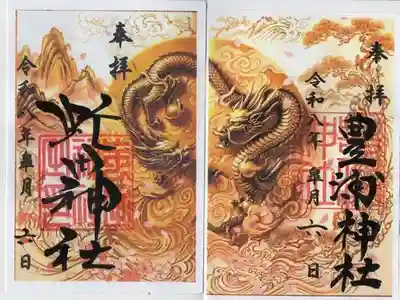 奉拝
神社
令和八年皐月
日
奉拝
豊浦神社
令和八年皐月一日